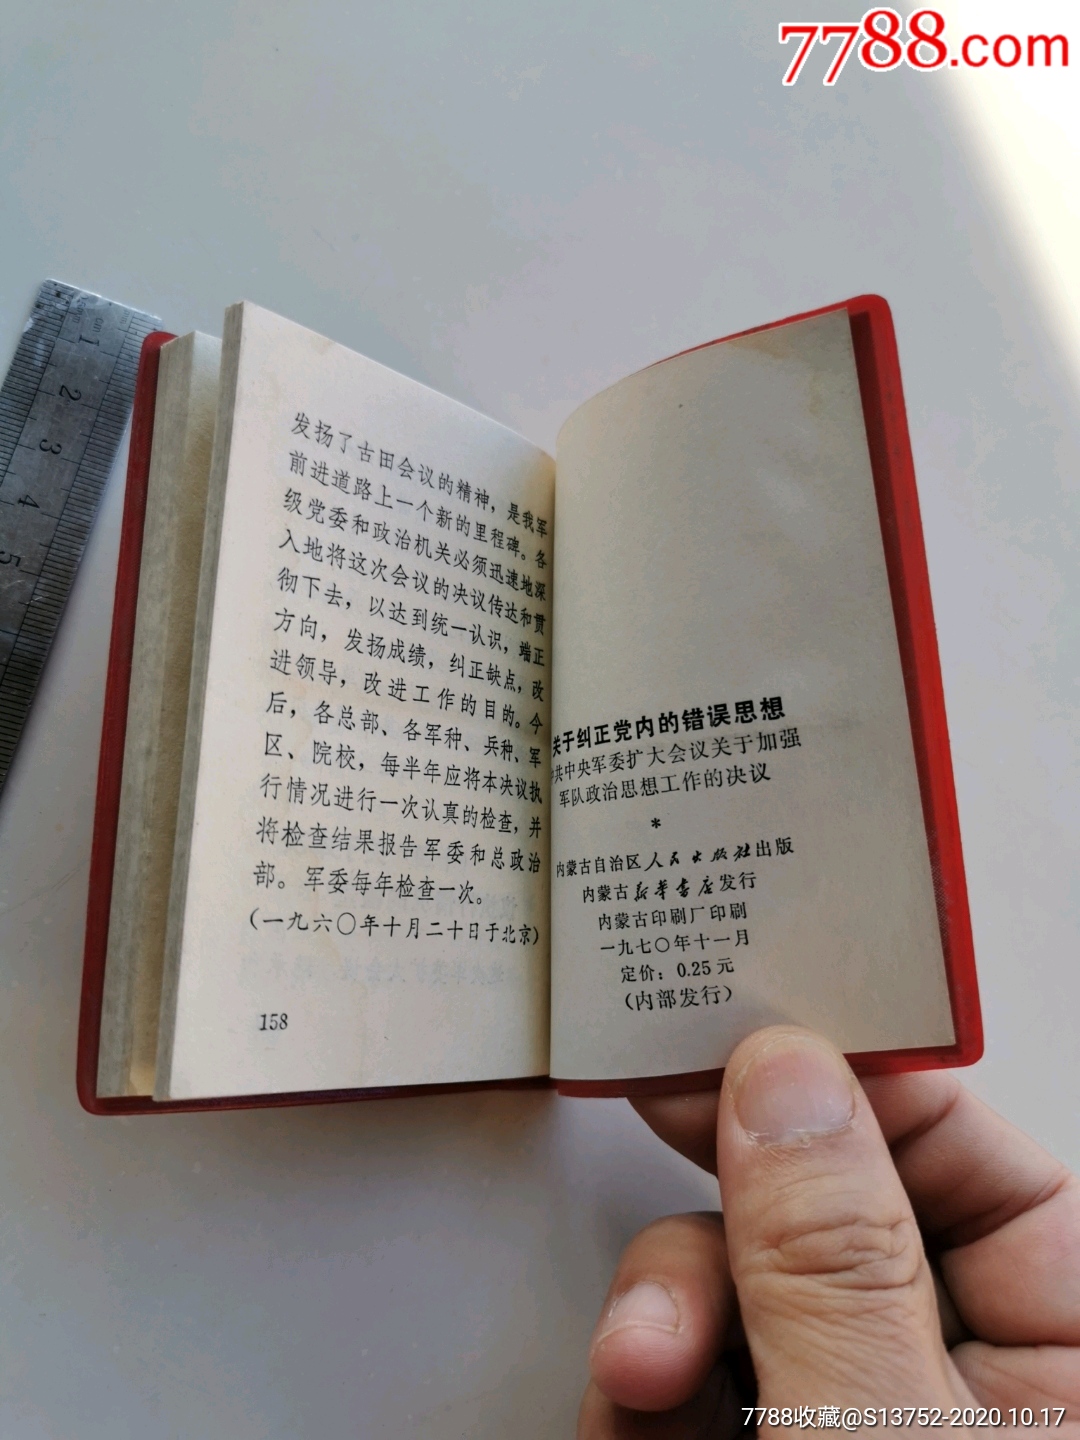 7788.com
1
2
3
4
5
发扬了古田会议的精神，是我军
前进道路上一个新的里程碑。各
级党委和政治机关必须迅速地深
入地将这次会议的决议传达和贯
彻下去，以达到统一认识，端正
方向，发扬成绩，纠正缺点，改
进领导，改进工作的目的。今
后，各总部、各军种、兵种、军
区、院校，每半年应将本决议执
行情况进行一次认真的检查，并
将检查结果报告军委和总政治
部。军委每年检查一次。
（一九六〇年十月二十日于北京）
158
关于纠正党内的错误思想
共中央军委扩大会议关于加强
军队政治思想工作的决议
*
内蒙古自治区人民出版社出版
内蒙古新华书店发行
内蒙古印刷厂印刷
一九七〇年十一月
定价：0.25元
（内部发行）
7788收藏@S13752-2020.10.17